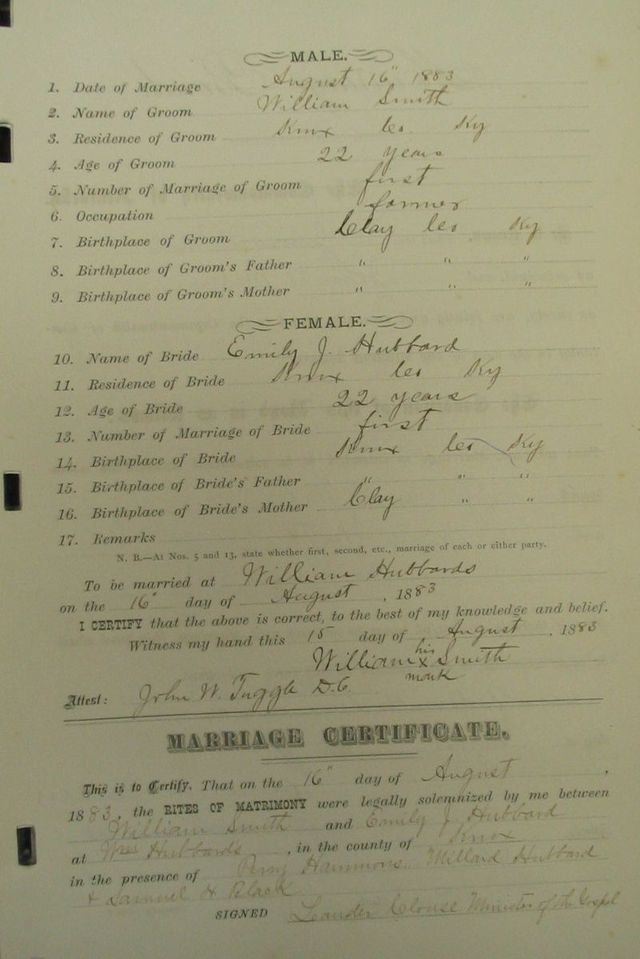 MALE.
1. Date of Marriage August 16" 1883
2. Name of Groom William Smith
3. Residence of Groom Knox Co Ky
4. Age of Groom 22 years
5. Number of Marriage of Groom first
6. Occupation farmer
7. Birthplace of Groom Clay Co Ky
8. Birthplace of Groom's Father " " "
9. Birthplace of Groom's Mother " " "
FEMALE.
10. Name of Bride Emily J. Hubbard
11. Residence of Bride Knox Co Ky
12. Age of Bride 22 years
13. Number of Marriage of Bride first
14. Birthplace of Bride Knox Co Ky
15. Birthplace of Bride's Father " " "
16. Birthplace of Bride's Mother Clay " "
17. Remarks
N. B.—At Nos. 5 and 13, state whether first, second, etc., marriage of each or either party.
To be married at William Hubbards
on the 16" day of August, 1883
I CERTIFY that the above is correct, to the best of my knowledge and belief.
Witness my hand this 15 day of August, 1883
William his x mark Smith
Attest: John W. Tuggle D.C.
MARRIAGE CERTIFICATE.
This is to Certify, That on the 16" day of August,
1883, the RITES OF MATRIMONY were legally solemnized by me between
William Smith and Emily J. Hubbard
at Wm Hubbards, in the county of Knox
in the presence of Hammons Millard Hubbard
& Samuel H Black
SIGNED Leander Clouse Minister of the Gospel